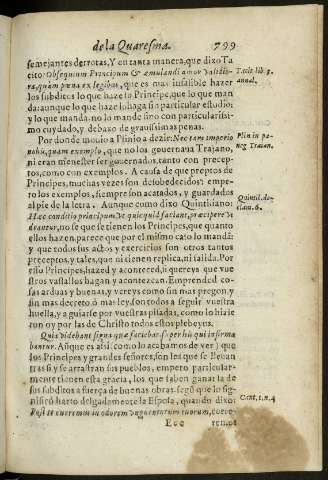 de la Quaresma. 799
semejantes derrotas, Y en tanta manera, que dixo Ta
cito: Obsequium Principum & æmulandi amor validio-
ra, quàm pœna ex legibus, que es mas infalible hazer
los subditos lo que haze su Principe, que lo que man
da: aunque lo que haze lo haga sin particular estudio:
y lo que manda, no lo mande sino con particularissi-
mo cuydado, y debaxo de grauissimas penas.
Por donde mouio a Plinio a dezir: Nec tam imperio
nobis, quam exemplo, que no los gouernaua Trajano,
ni eran menester ser gouernados, tanto con precep-
ptos, como con exemplos. A causa de que preptos de
Principes, muchas vezes son desobedecidos: empe-
ro los exemplos, siempre son acatados, y guardados
al pie de la letra. Aunque como dixo Quintiliano:
Hæc conditio principum vt quicquid faciant, præcipere vi
deantur, no se que se tienen los Principes, que quanto
ellos hazen parece que por el mismo caso lo manda:
y que todos sus actos y exercicios son otros tantos
preceptos, y tales, que ni tienen replica, ni salida. Por
esso Principes, hazed y acometed, si quereys que vues
tros vassallos hagan y acometan. Emprended co-
sas arduas y buenas, y vereys como sin mas pregon, y
sin mas decreto, ò mas ley, son todos a seguir vuestra
huella, y a guiarse por vuestras pisadas, como lo hizie
ron oy por las de Christo todos estos plebeyos.
Quia videbant signa quæ faciebat super his qui infirma
bantur. Aũque es assi (como lo acabamos de ver) que
los Principes y grandes señores, son les que se lleuan
tras si y se arrastran sus pueblos, empero particular-
mente tienen esta gracia, los que saben ganar la de
sus subditos a fuerça de buenas obras segũ que lo sig-
nificò harto delgadamente la Esposa, quando dixo:
Post te curremus in odorem vnguentorum tuorum, corre-
Eee remos
Tacit. lib. 3.
annal.
Plin in pa-
neg Traian.
Quintil. de-
clam. 6.
Cant. 1. n. 4